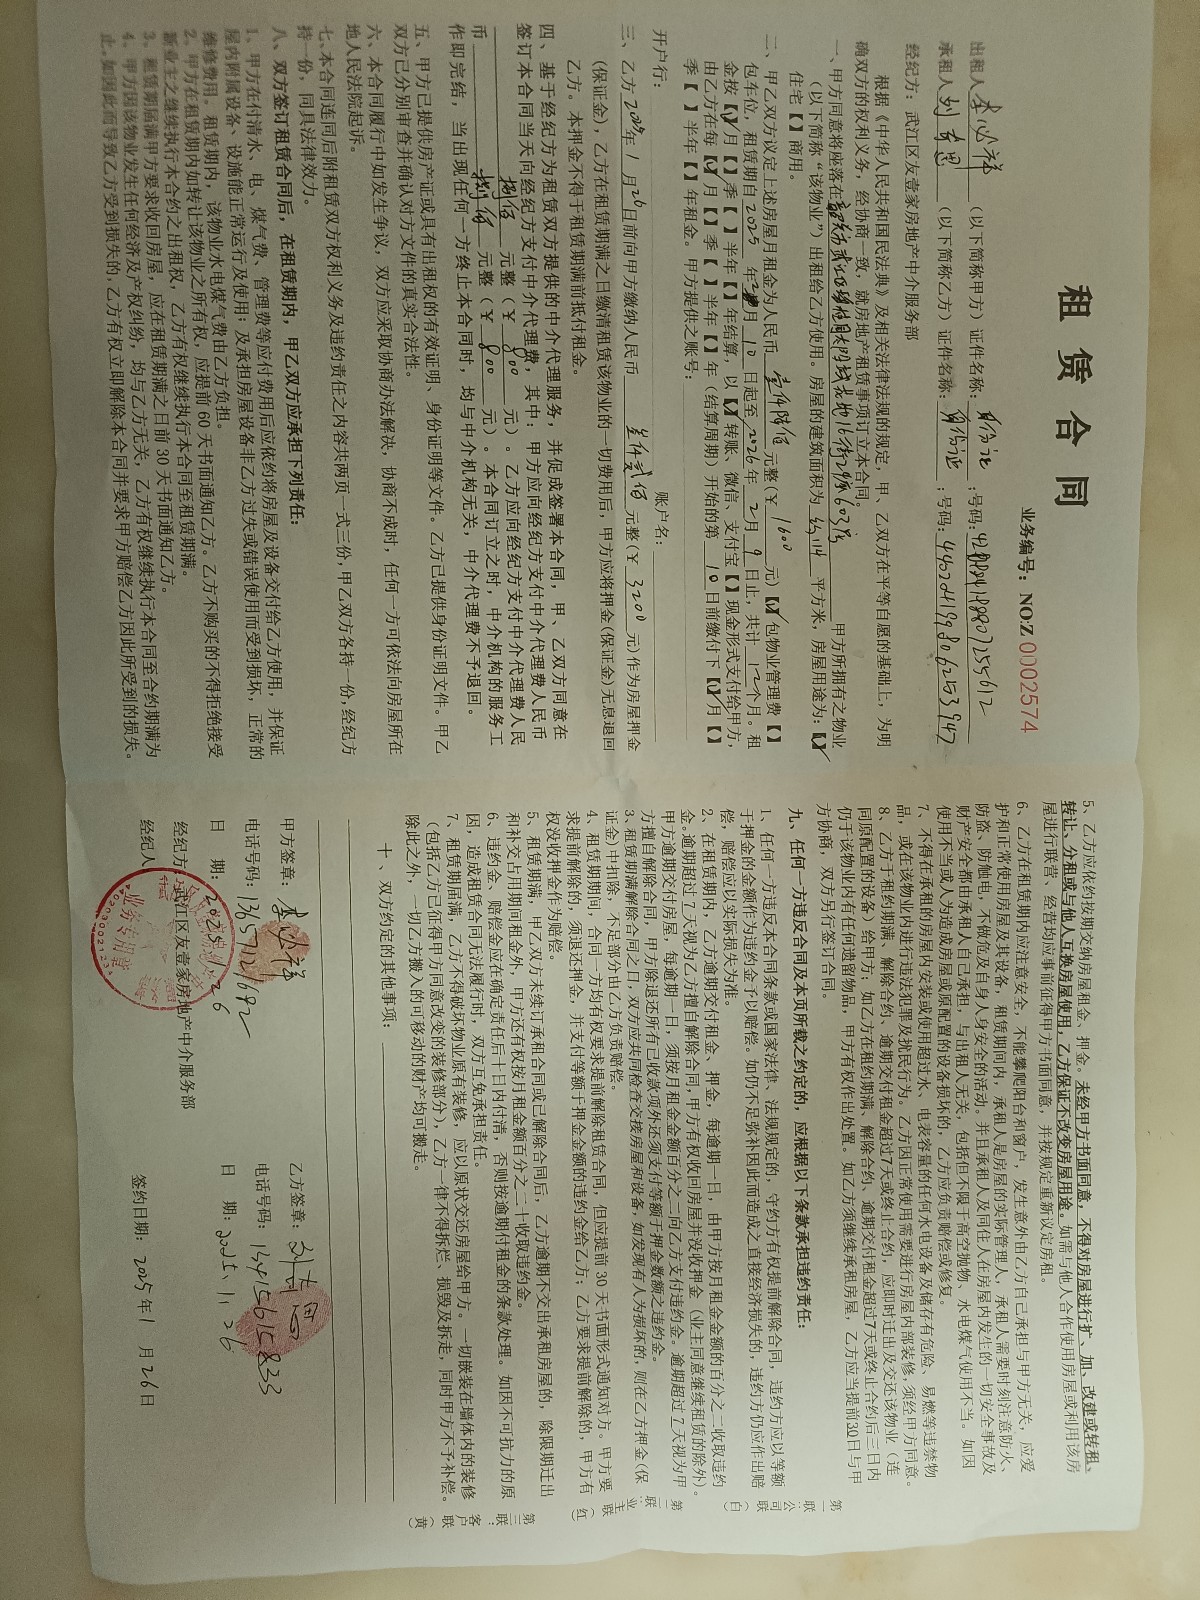 租赁合同
业务编号：NO:Z 0002574
出租人 李必祥 （以下简称甲方）证件名称：身份证；号码：
承租人 （以下简称乙方）证件名称：身份证；号码：
经纪方：武江区友壹家房地产中介服务部
根据《中华人民共和国民法典》及相关法律法规的规定，甲、乙双方在平等自愿的基础上，为明
确双方的权利义务，经协商一致，就房地产租赁事项订立本合同。
一、甲方同意将座落在 甲方所拥有之物业
（以下简称“该物业”）出租给乙方使用。房屋的建筑面积为 平方米，房屋用途为：【√】
住宅【 】商用。
二、甲乙双方议定上述房屋月租金为人民币 壹仟陆佰 元整（￥ 1600 元）【√】包物业管理费【 】
包车位，租赁期自2025年2月10日起至2026年2月9日止，共计12个月。租
金按【√】月【 】季【 】半年【 】年结算，以【√】转账、微信、支付宝【 】现金形式支付给甲方，
由乙方在每【√】月【 】季【 】半年【 】年（结算周期）开始的第 10 日前缴付下【√】月【 】
季【 】半年【 】年租金。甲方提供之账号：
开户行： 账户名：
三、乙方2025年1月26日前向甲方缴纳人民币 叁仟贰佰 元整（￥ 3200 元）作为房屋押金
（保证金），乙方在租赁期满之日缴清租赁该物业的一切费用后，甲方应将押金（保证金）无息退回
乙方。本押金不得于租赁期满前抵付租金。
四、基于经纪方为租赁双方提供的中介代理服务，并促成签署本合同，甲、乙双方同意在
签订本合同当天向经纪方支付中介代理费，其中：甲方应向经纪方支付中介代理费人民币
捌佰 元整（￥ 800 元）。乙方应向经纪方支付中介代理费人民
币 捌佰 元整（￥ 800 元）。本合同订立之时，中介机构的服务工
作即完结，当出现任何一方终止本合同时，均与中介机构无关，中介代理费不予退回。
五、甲方已提供房产证或具有出租权的有效证明、身份证明等文件。乙方已提供身份证明文件。甲乙
双方已分别审查并确认对方文件的真实合法性。
六、本合同履行中如发生争议，双方应采取协商办法解决，协商不成时，任何一方可依法向房屋所在
地人民法院起诉。
七、本合同连同后附租赁双方权利义务及违约责任之内容共两页一式三份，甲乙双方各持一份，经纪方
持一份，同具法律效力。
八、双方签订租赁合同后，在租赁期内，甲乙双方应承担下列责任：
1、甲方在付清水、电、煤气费、管理费等应付费用后应依约将房屋及设备交付给乙方使用，并保证
屋内附属设备、设施能正常运行及使用；及承担房屋设备非乙方过失或错误使用而受到损坏，正常的
维修费用。租赁期内，该物业水电煤气费由乙方负担。
2、甲方在租赁期内如转让该物业之所有权，应提前60天书面通知乙方。乙方不购买的不得拒绝接受
新业主之继续执行本合约之出租权，乙方有权继续执行本合同至租赁期满。
3、租赁期届满甲方要求收回房屋，应在租赁期满之日前30天书面通知乙方。
4、甲方因该物业发生任何经济及产权纠纷，均与乙方无关，乙方有权继续执行本合同至合约期满为
止，如因此而导致乙方受到损失的，乙方有权立即解除本合同并要求甲方赔偿乙方因此所受到的损失。
5、乙方应依约按期交纳房屋租金、押金。未经甲方书面同意，不得对房屋进行扩、加、改建或转租、
转让、分租或与他人互换房屋使用，乙方保证不改变房屋用途。如需与他人合作使用房屋或利用该房
屋进行联营、经营均应事前征得甲方书面同意，并按规定重新议定房租。
6、乙方在租赁期内应注意安全，不能攀爬阳台和窗户，发生意外由乙方自己承担与甲方无关，应爱
护和正常使用房屋及其设备，租赁期间内，承租人是房屋的实际管理人，承租人需要时刻注意防火、
防盗、防触电，不做危及自身人身安全的活动。并且承租人及同住人在房屋内发生的一切安全事故及
财产安全都由承租人自己承担，与出租人无关，包括但不限于高空抛物、水电煤气使用不当。如因
使用不当或人为造成房屋或原配置的设备损坏的，乙方应负责赔偿或修复。
7、不得在承租的房屋内安装或使用超过水、电表容量的任何水电设备及储存有危险、易燃等违禁物
品，或在该物业内进行违法犯罪及扰民行为。乙方因正常使用需要进行房屋内部装修，须经甲方同意。
8、乙方于租约期满、解除合约、逾期交付租金超过7天或终止合约，应即时迁出及交还该物业（连
同原配置的设备）给甲方；如乙方在租约期满、解除合约、逾期交付租金超过7天或终止合约后三日内
仍于该物业内有任何遗留物品，甲方有权作出处置。如乙方须继续承租房屋，乙方应当提前30日与甲
方协商，双方另行签订合同。
九、任何一方违反合同及本页所载之约定的，应根据以下条款承担违约责任：
1、任何一方违反本合同条款或国家法律、法规规定的，守约方有权提前解除合同，违约方应以等额
于押金的金额作为违约金予以赔偿。如仍不足弥补因此而造成之直接经济损失的，违约方仍应作出赔
偿，赔偿应以实际损失为准。
2、在租赁期内，乙方逾期交付租金、押金，每逾期一日，由甲方按月租金金额的百分之二收取违约
金。逾期超过7天视为乙方擅自解除合同，甲方有权收回房屋并没收押金（业主同意继续租赁的除外）。
甲方逾期交付房屋，每逾期一日，须按月租金金额百分之二向乙方支付违约金。逾期超过7天视为甲
方擅自解除合同，甲方除退还所有已收款项外还须支付等额于押金数额之违约金。
3、租赁期满解除合同之日，双方应共同检查交接房屋和设备，如发现有人为损坏的，则在乙方押金（保
证金）中扣除，不足部分由乙方负责赔偿。
4、租赁期期间，合同一方均有权要求提前解除租赁合同，但应提前30天书面形式通知对方。甲方要
求提前解除的，须退还押金，并支付等额于押金金额的违约金给乙方；乙方要求提前解除的，甲方有
权没收押金作为赔偿。
5、租赁期满，甲乙双方未续订承租合同或已解除合同后，乙方逾期不交出承租房屋的，除限期迁出
和补交占用期间租金外，甲方还有权按月租金额百分之二十收取违约金。
6、违约金、赔偿金应在确定责任后十日内付清，否则按逾期付租金的条款处理。如因不可抗力的原
因，造成租赁合同无法履行时，双方互免承担责任。
7、租赁期届满，乙方不得破坏物业原有装修，应以原状交还房屋给甲方。一切嵌装在墙体内的装修
（包括乙方已征得甲方同意改变的装修部分），乙方一律不得拆烂、损毁及拆走，同时甲方不予补偿。
除此之外，一切乙方搬入的可移动的财产均可搬走。
十、双方约定的其他事项：
甲方签章：李必祥 乙方签章：
电话号码：13657121692 电话号码：13415615833
日 期：2025.1.26 日 期：2025.1.26
经纪方：武江区友壹家房地产中介服务部
经纪人： 签约日期：2025年1月26日
业务专用章
第一联：公司（白）
第二联：业主（红）
第三联：客户（黄）